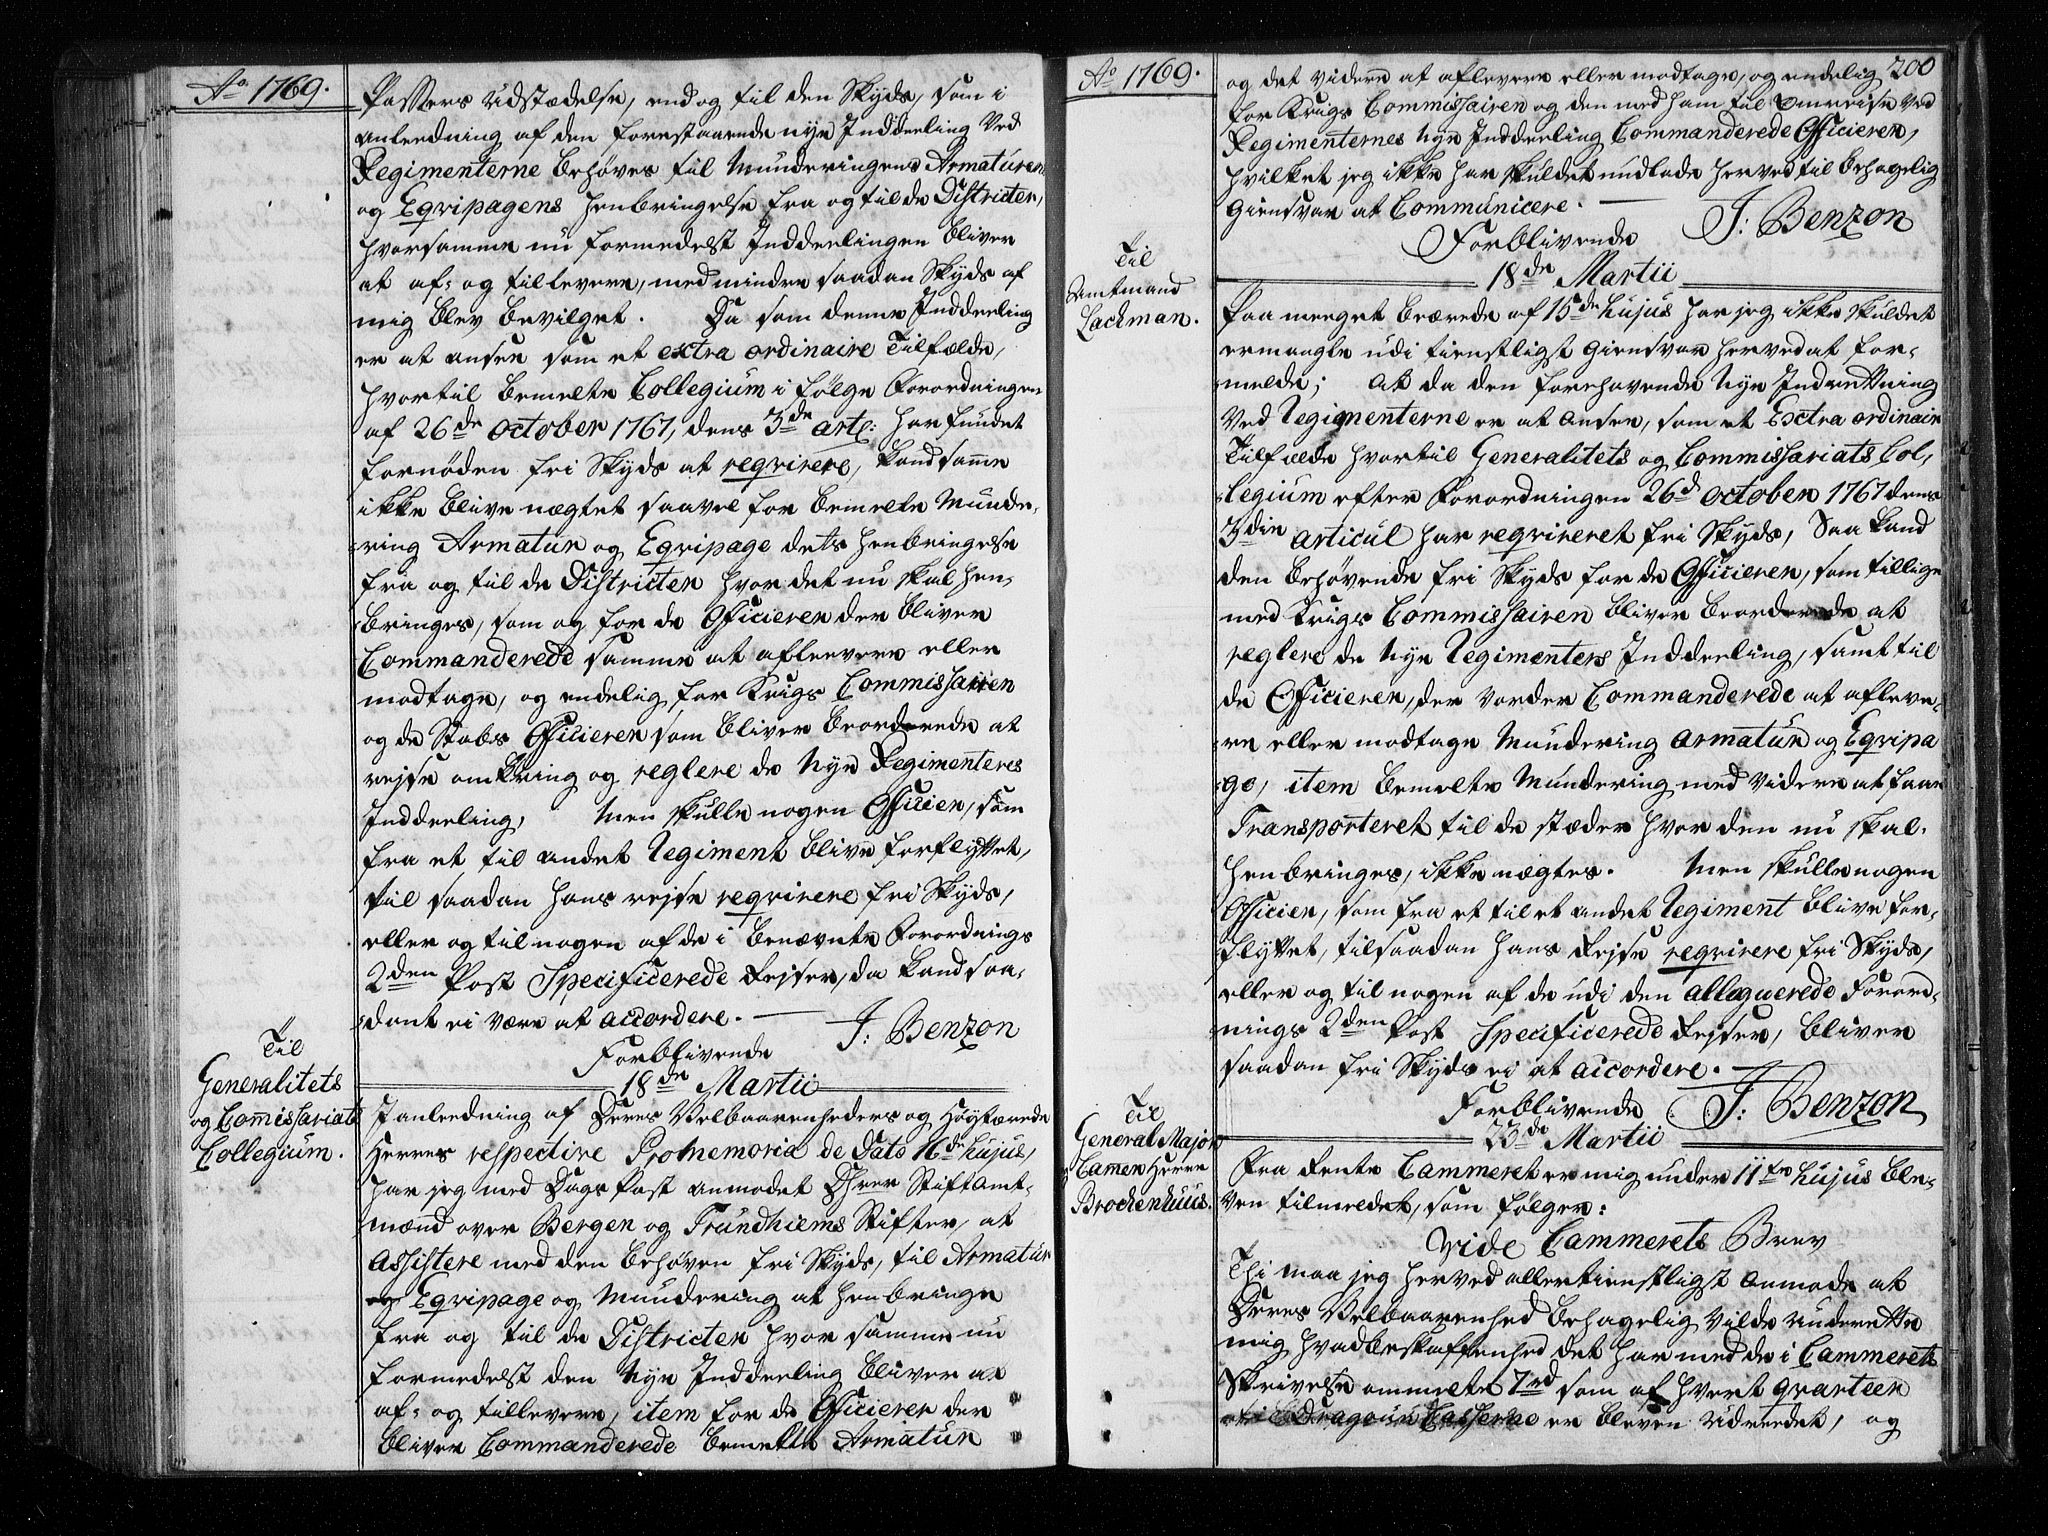 Ao 1769.
Passers udstædelse, end og til den Skyds, som i
anledning af den forestaaende nye Inddeeling ved
Regimenterne behøves til Munderingens Armaturen
og Eqvipagens henbringelse fra og til de Districter,
hvor samme nu formedelst Inddeelingen bliver
at af- og tillevere, med mindre saadan Skyds af
mig blev bevilget. Da som denne Inddeeling
er at ansee som et extra ordinaire Tilfælde,
hvortil bemelte Collegium i følge Forordningen
af 26de October 1767, dens 3de artl: har fundet
fornøden fri Skyds at reqvirere, kand samme
ikke blive nægtet saavel for bemelte Munde-
ring Armatur og Eqvipage dets henbringelse
fra og til de Districter hvor det nu skal hen-
bringes, som og for de Officierer der bliver
Commanderede samme at aflevere eller
modtage, og endelig for Krigs Commissairen
og de Stabs Officierer som bliver beordrede at
rejse omkring og reglere de Nye Regimenters
Inddeeling, Men skulle nogen Officier, som
fra et til andet Regiment blive forflyttet,
til saadan hans rejse reqvirere fri Skyds,
eller og til nogen af de i benævnte Forordnings
2den Post Specificerede Rejser, da kand saa-
dant ei være at accordere.
Forblivende J: Benzon
18de Martii
Til
Generalitets
og Commissariats
Collegium.
I anleedning af Deres Velbaarenheders og Høytærede
Herres respective Promemoria de Dato 16de hujus,
har jeg med Dags Post anmodet Dhrer Stiftamt-
mænd over Bergen og Trundhiems Stifter, at
assistere med den behøven fri Skyds, til Armatur
og Eqvipage og Mundering at henbringe
fra og til de Districter hvor samme nu
formedelst den Nye Inddeeling bliver at
af- og tillevere, item for de Officierer der
bliver Commanderede bemelte Armatur
Ao 1769.
200
og det videre at aflevere eller modtage, og endelig
for Krigs Commissairen og den med ham til omreise ved
Regimenternes Nye Inddeeling Commanderede Officierer,
hvilket jeg ikke har skuldet undlade herved til behagelig
Giensvar at Communicere.
Forblivende J: Benzon
18de Martii
Til
Amtmand
Lachman.
Paa meeget beærede af 15de hujus har jeg ikke skuldet
ermangle udi tienstligst Giensvar herved at for-
melde; At da den forehavende Nye Indretning
ved Regimenterne er at ansee, som et Extra ordinair
Tilfælde hvortil Generalitets og Commissariats Col-
legium efter Forordningen 26de October 1767 dens
3die articul har reqvireret fri Skyds, Saa kand
den behøvende fri Skyds for de Officierer, som tillige
med Krigs Commissairen bliver beordrede at
reglere de Nye Regimenters Inddeeling, samt til
de Officierer, der vorder Commanderede at afleve-
re eller modtage Mundering Armatur og Eqvipa
ge, item bemelte Mundering med videre at faae
Transporteret til de stæder hvor den nu skal
henbringes, ikke nægtes. Men skulle nogen
Officier, som fra et til et andet Regiment blive for-
flyttet, til saadan hans Rejse reqvirere fri Skyds,
eller og til nogen af de udi den alleguerede Forord-
nings 2den Post Specificerede Rejser, bliver
saadan fri Skyds ei at accordere.
Forblivende J: Benzon
23de Martii
Til
General Major
og Camer Herre
Brockenhuus.
Fra Rente Cammeret er mig under 11te hujus ble-
ven tilmeldet, som følger:
Vide Cammerets Brev
Thi maa jeg herved allertienstligst anmode at
Deres Velbaarenhed behagelig vilde underrette
mig hvad beskaffenhed det har med de i Cammerets
Skrivelse ommelte 7rd som af hvert qvarteer
til Dragoun Casserne er bleven udreedet, og